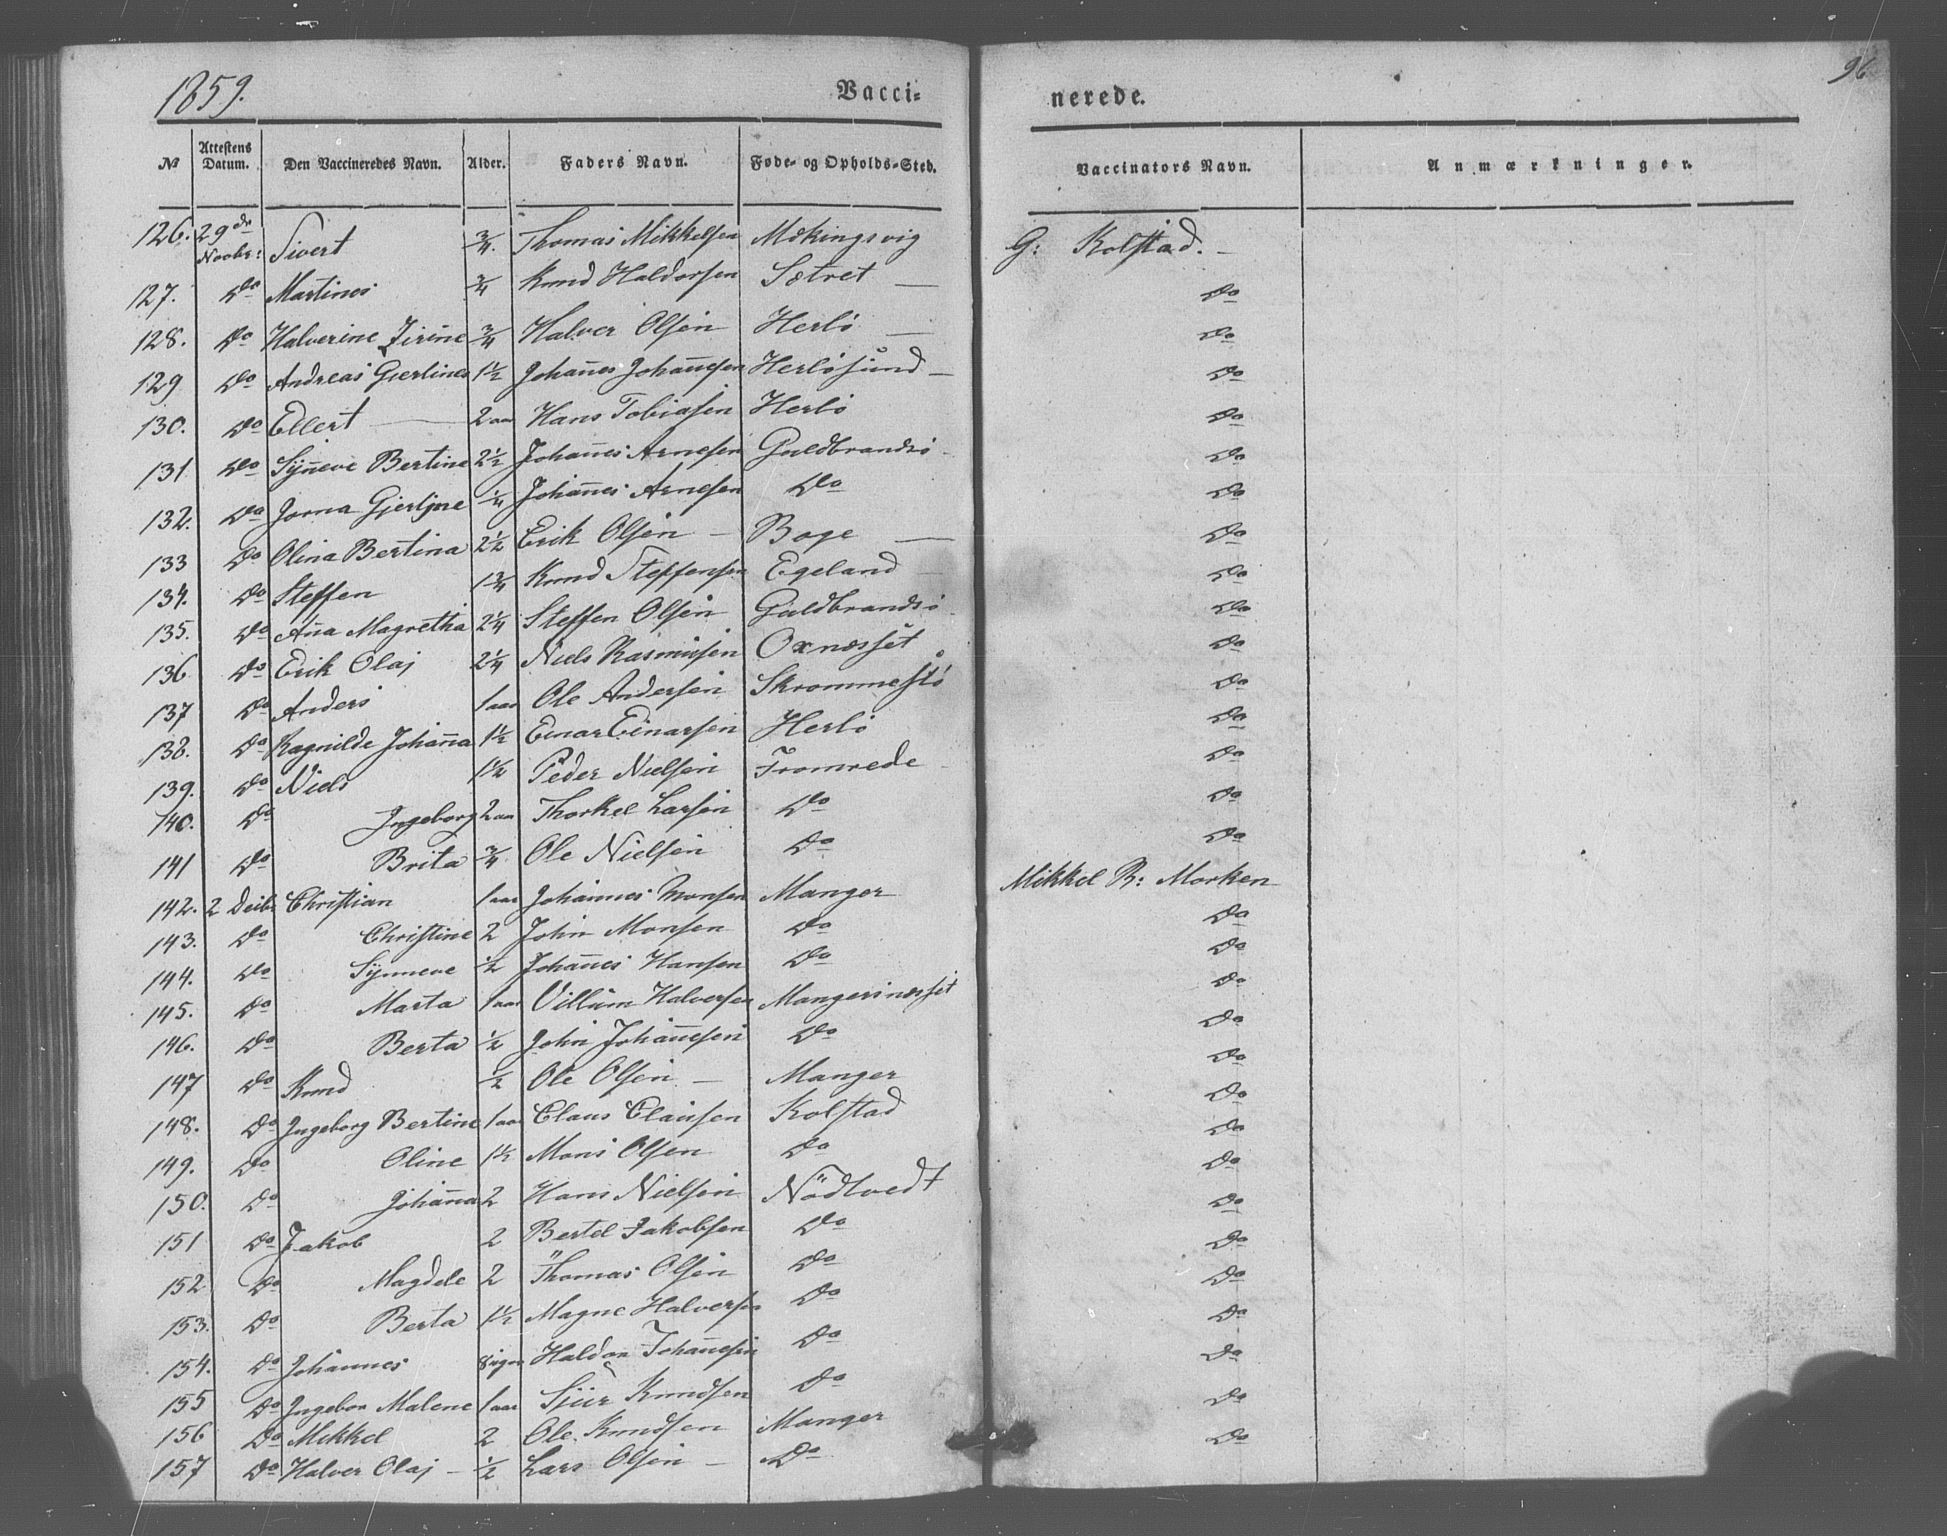 1859.
Vacci-
nerede.
96
No Attestens Datum. Den Vaccineredes Navn. Alder. Faders Navn. Føde- og Opholds-Sted. Vaccinators Navn. Anmærkninger.
126. 29de Novbr: Sivert 3/4 Thomas Mikkelsen Mækingsvig G: Kolstad.
127. Do Martines 3/4 Knud Haldorsen Sætret Do
128. Do Halverine Zirine 3/4 Halver Olsen Herlö Do
129 Do Andreas Gjertines 1 1/2 Johañes Johañesen Herlösund Do
130. Do Ellert 2 aar Hans Tobiasen Herlö Do
131 Do Syñeve Bertine 2 1/2 Johañes Arnesen Guldbrandsö Do
132. Do Jorna Gjertine 1/4 Johañes Arnesen Do Do
133 Do Olina Bertina 2 1/2 Erik Olsen Boge Do
134. Do Steffen 1 3/4 Knud Steffensen Egeland Do
135. Do Aña Magretha 2 1/4 Steffen Olsen Guldbrandsö Do
136 Do Erik Olaj 2 1/4 Niels Rasmusen Oxnesset Do
137 Do Anders 1 aar Ole Andersen Skrommestö Do
138. Do Ragnilde Johaña 1 1/2 Einar Einarsen Herlö Do
139. Do Niels 1 1/2 Peder Nielsen Fromrede Do
140. Do Ingeborg 2 aar Thorkel Larsen Do Do
141 Do Brita 3/4 Ole Nielsen Do Do
142. 2 Decbr Christian 1 aar Johannes Monsen Manger Mikkel R: Morken
143. Do Christine 2 John Monsen Do Do
144. Do Synneve 1/2 Johañes Hansen Do Do
145. Do Marta 1 aar Villum Halversen Mangersnesset Do
146. Do Berta 1/2 John Johañesen Do Do
147 Do Knud 1/2 Ole Olsen Manger Do
148. Do Ingeborg Bertine 1 aar Claus Clausen Kolstad Do
149. Do Oline 1 1/2 Mons Olsen Do Do
150. Do Johaña 2 Hans Nielsen Nödtvedt Do
151 Do Jakob 2 Bertel Jakobsen Do Do
152 Do Magdele 2 Thomas Olsen Do Do
153. Do Berta 1 1/2 Magne Halversen Do Do
154. Do Johannes Haldor Johañesen Do Do
155 Do Ingebor Malene 1 aar Sjur Knudsen Do Do
156 Do Mikkel 2 Ole Knudsen Manger Do
157 Do Halver Olaj 1/2 Lars Olsen Do Do